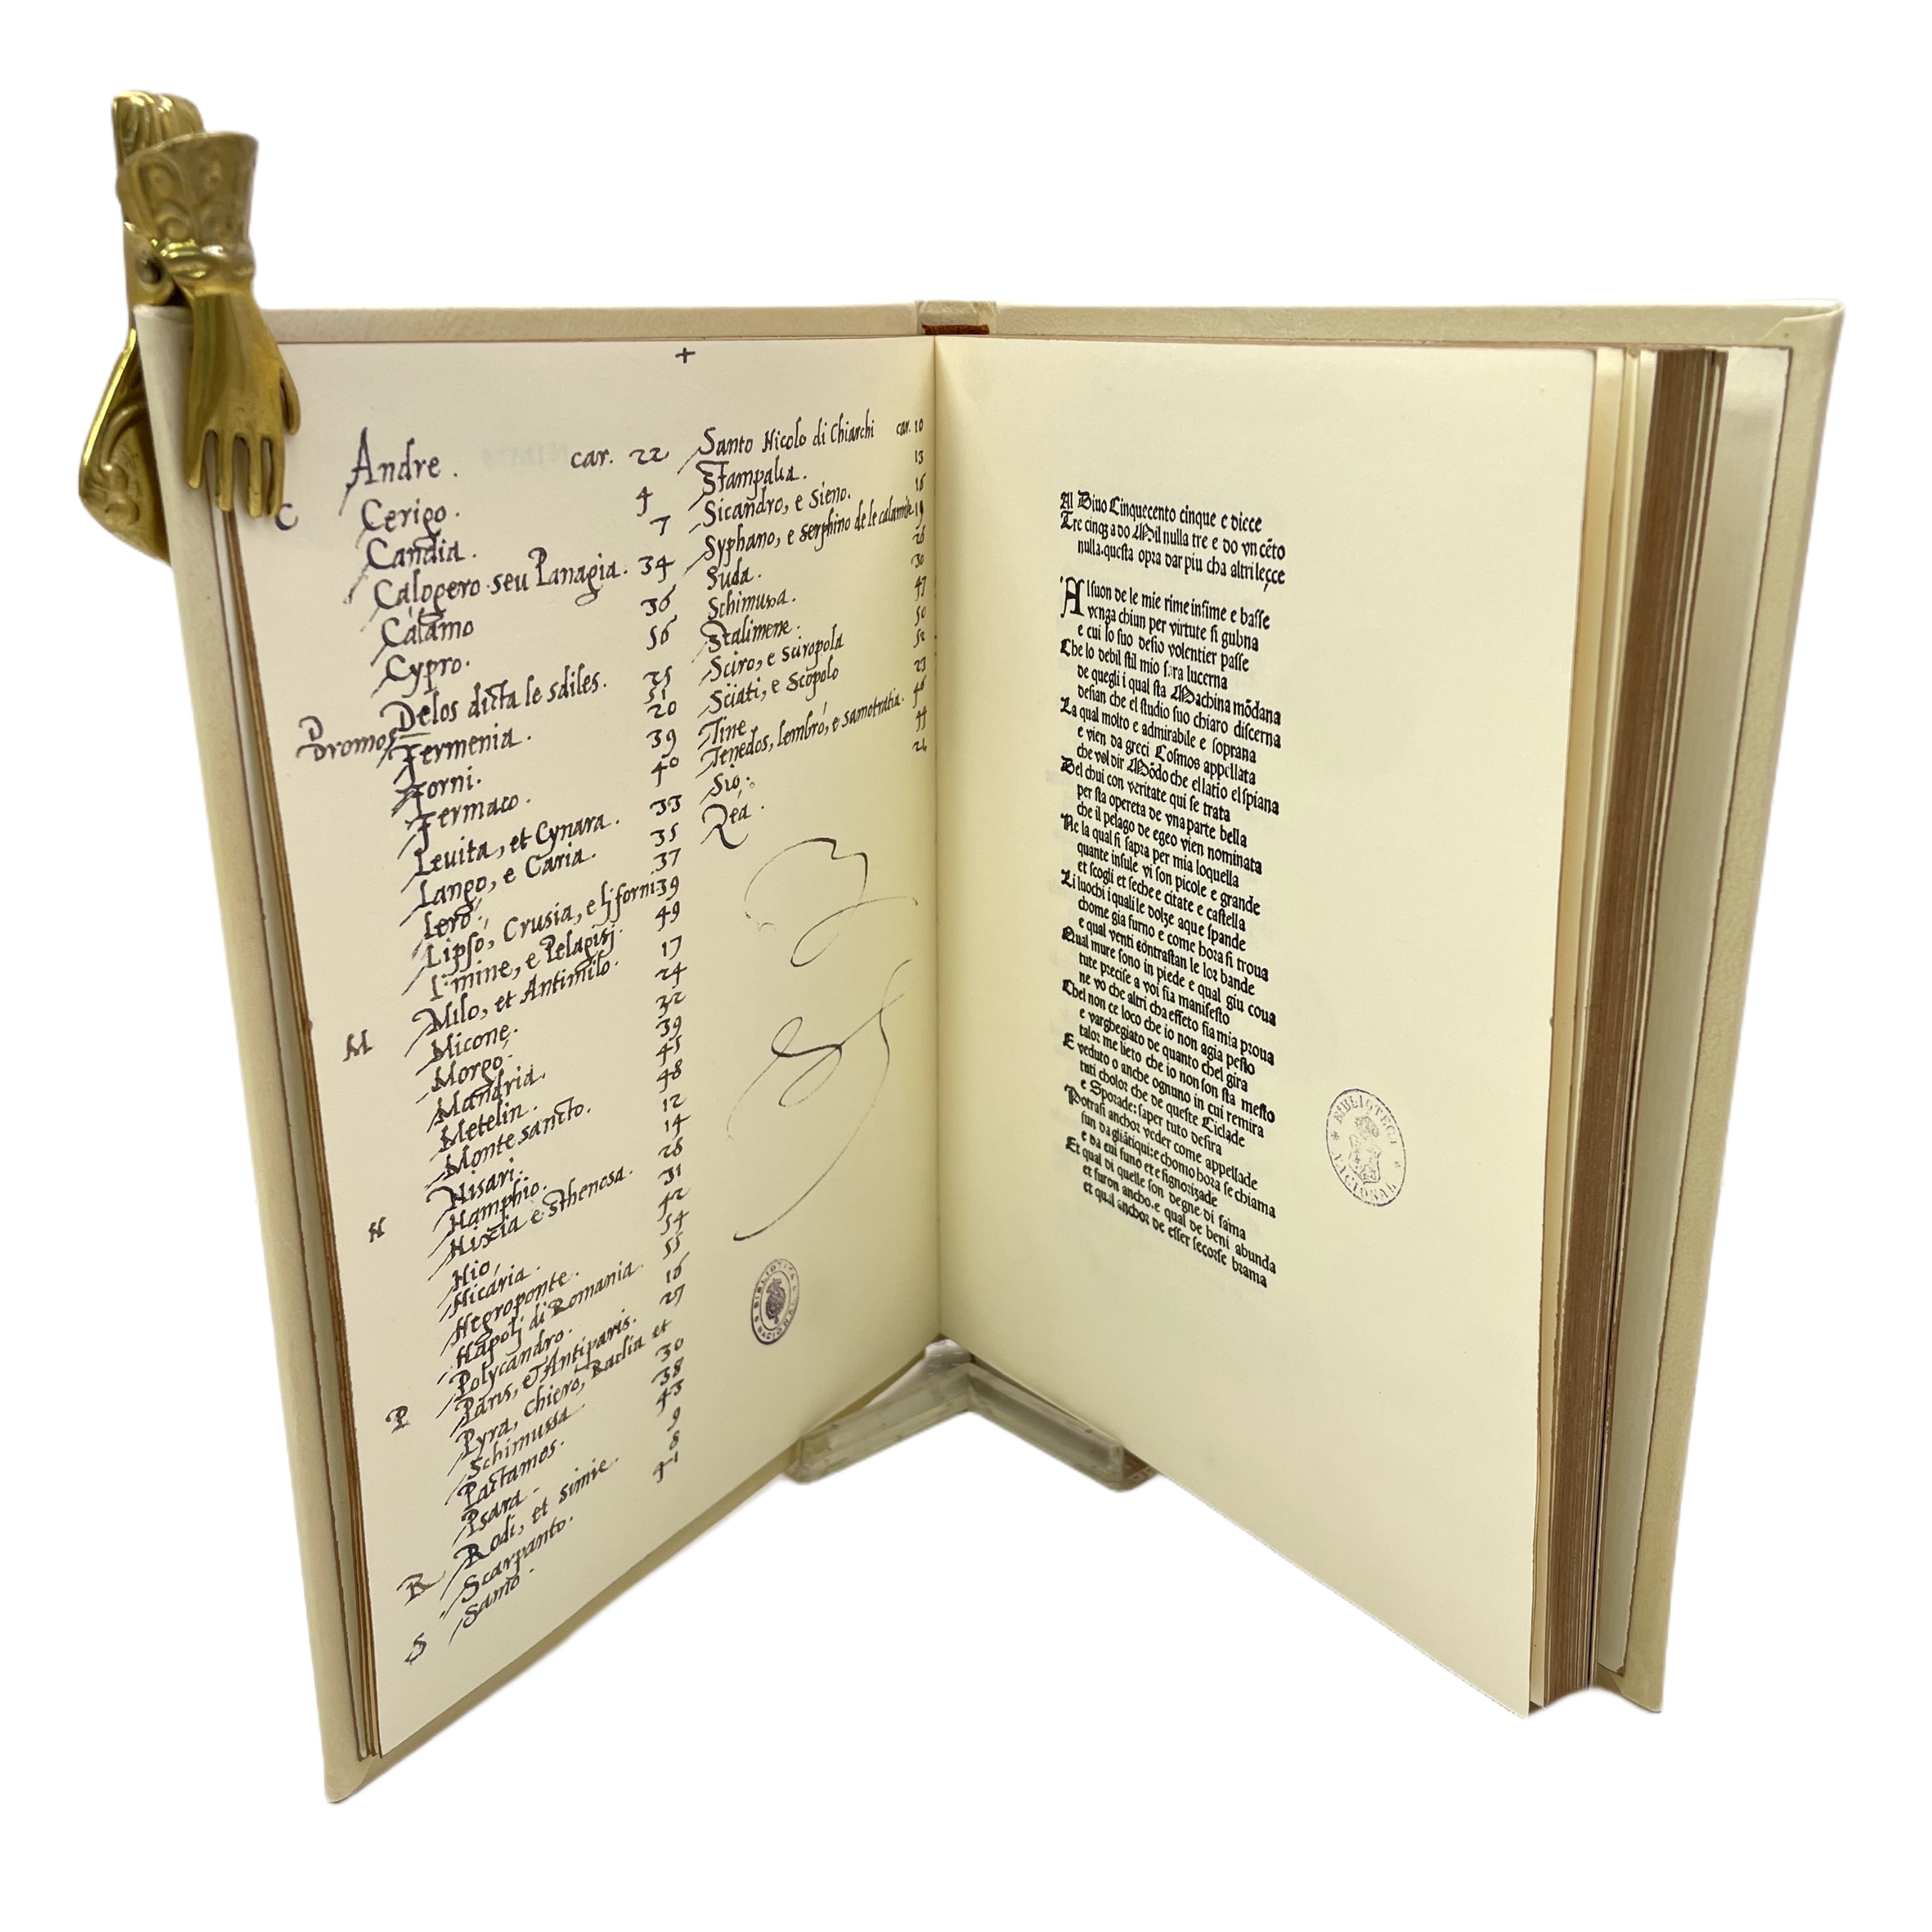 +
Andre. car. 22
C Cerigo. 4
Candia. 7
Calopero seu Panagia. 34
Calamo 36
Cypro. 56
Delos dicta le sdiles. 25
D Dromos 51
Fermenia. 20
Forni. 39
Fermaco. 40
Levita, et Cynara. 33
Lango, e Caria. 35
Lero. 37
Lipso, Crusia, e lj forni 39
e Pelagisj. 49
M Milo, et Antimilo. 17
Micone. 24
Morgo. 32
Mandria. 39
Metelin. 45
Monte sancto. 48
N Nisari. 12
Namphio. 14
Nixia e Sthenosa. 28
Nio, 31
Nicaria. 42
Negroponte. 54
Napolj di Romania. 55
Polycandro. 16
P Parus, et Antiparis. 27
Pyra, Chiero, Raclia et
Schimussa. 30
Pactamos. 38
Psara. 43
R Rodi, et simie. 9
Scarpanto. 8
S Samo. 41
Santo Nicolo di Chiarchi car. 10
Stampalia. 13
Sicandro, e Sieno. 15
Syphano, e serphino de le calamite 19
Suda.
Schimusa. 30
Stalimene. 47
Sciro, e sciropola 50
Sciati, e Scopolo 52
Tine 23
Tenedos, lembro, e samotratia. 46
Sio. 44
Rea. 26
BIBLIOTECA NACIONAL
Al Diuo Cinquecento cinque e diece
Tre cinq̃ a do Mil nulla tre e do vn cẽto
nulla questa opra dar piu cha altri leçce
Al suon de le mie rime infime e basse
venga chiun per virtute si gubna
e cui lo suo desio volentier passe
Che lo debil stil mio sara lucerna
de quegli i qual sta Machina mõdana
desian che el studio suo chiaro discerna
La qual molto e admirabile e soprana
e vien da greci Cosmos appellata
che vol dir Mõdo che el latio el spiana
Del chui con veritate qui se trata
per sta opereta de vna parte bella
che il pelago de egeo vien nominata
Ne la qual si sapra per mia loquella
quante insule vi son picole e grande
et scogli et seche e citate e castella
Li luochi i quali le dolze aque spande
chome gia furno e come hora si troua
e qual venti cõntrastan le lor bande
Qual mure sono in piede e qual giu coua
tute precise a voi fia manifesto
ne vo che altri cha effeto fia mia proua
Chel non ce loco che io non agia pesto
e vargbegiato de quanto chel gira
talor me lieto che io non son sta mesto
E veduto o anche ognuno in cui remira
tuti cholor che de queste Ciclade
e Sporade: saper tuto desira
Potrasi anchor veder come appellade
sun da gliãtiqui: e chomo hora se chiama
e da cui funo et e signorizade
Et qual di quelle son degne di fama
et furon ancho. e qual de beni abunda
et qual anchor de esser secorse brama
BIBLIOTECA NACIONAL